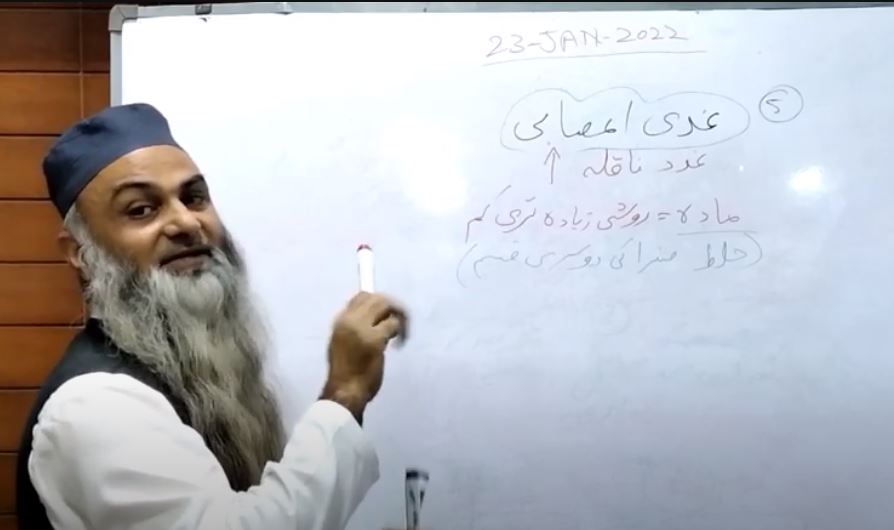 23-JAN-2022
۵ غدی اعصابی
غدد ناقلہ
مادہ = روشنی زیادہ تری کم
(خلط صفرا کی دوسری قسم)